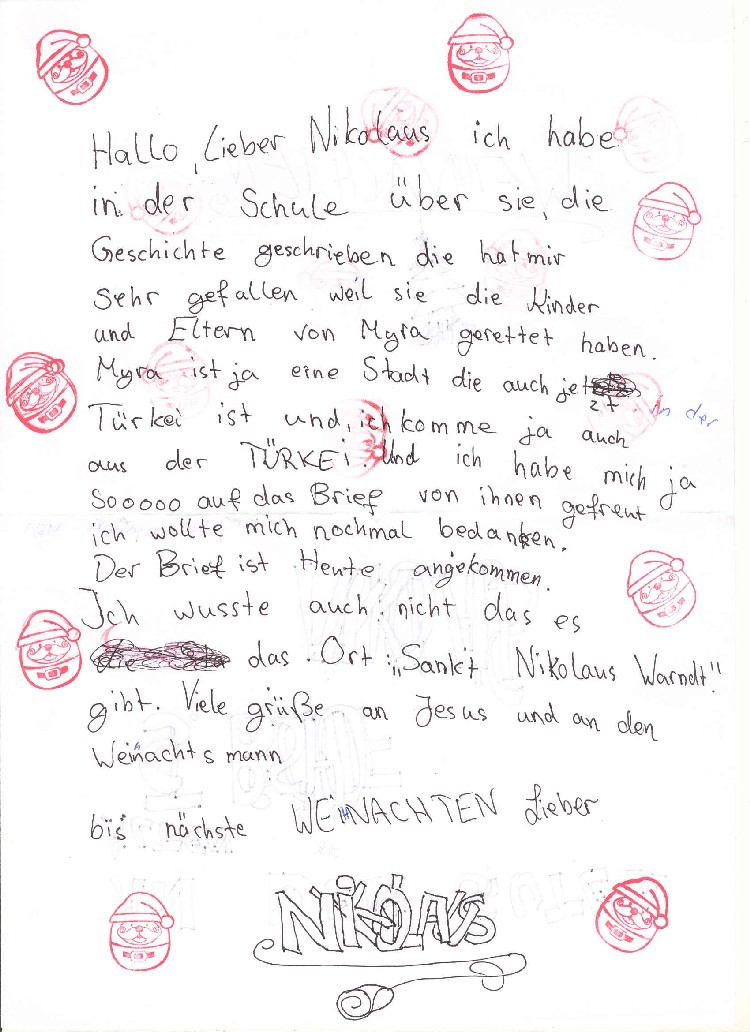 Hallo, Lieber Nikolaus ich habe
in der Schule über sie, die
Geschichte geschrieben die hat mir
Sehr gefallen weil sie die Kinder
und Eltern von Myra gerettet haben.
Myra ist ja eine Stadt die auch jetzt in der
Türkei ist und, ich komme ja auch
aus der TÜRKEi. Und ich habe mich ja
Sooooo auf das Brief von ihnen gefreut
ich wollte mich nochmal bedanken.
Der Brief ist Heute angekommen.
Ich wusste auch nicht das es
das Ort „Sankt Nikolaus Warndt"
gibt. Viele grüße an Jesus und an den
Weihnachtsmann
bis nächste WEiHNACHTEN Lieber
NiKOLAUS